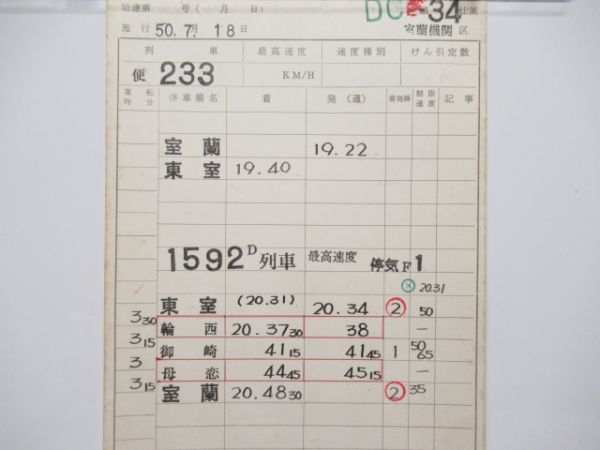 局達第 号( 月 日)
DC 34 仕業
施行 50.7月18日 室蘭機関区
列車 最高速度 速度種別 けん引定数
便233 KM/H
運転時分 停車場名 着 発(通) 着発線 制限速度 記事
室蘭 19.22
東室 19.40
1592D列車 最高速度 停気F1
× 20.31
東室 (20.31) 20.34 ② 50
330 輪西 20.3730 38 —
315 御崎 4115 4145 1 50 65
3 母恋 4445 4515 —
315 室蘭 20.4830 ② 35